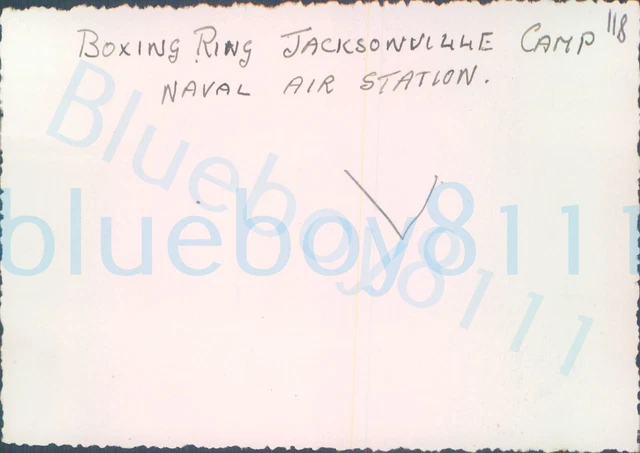 118
BOXING RING JACKSONVILLE CAMP
NAVAL AIR STATION.
Blueboy8111
blueboy8111